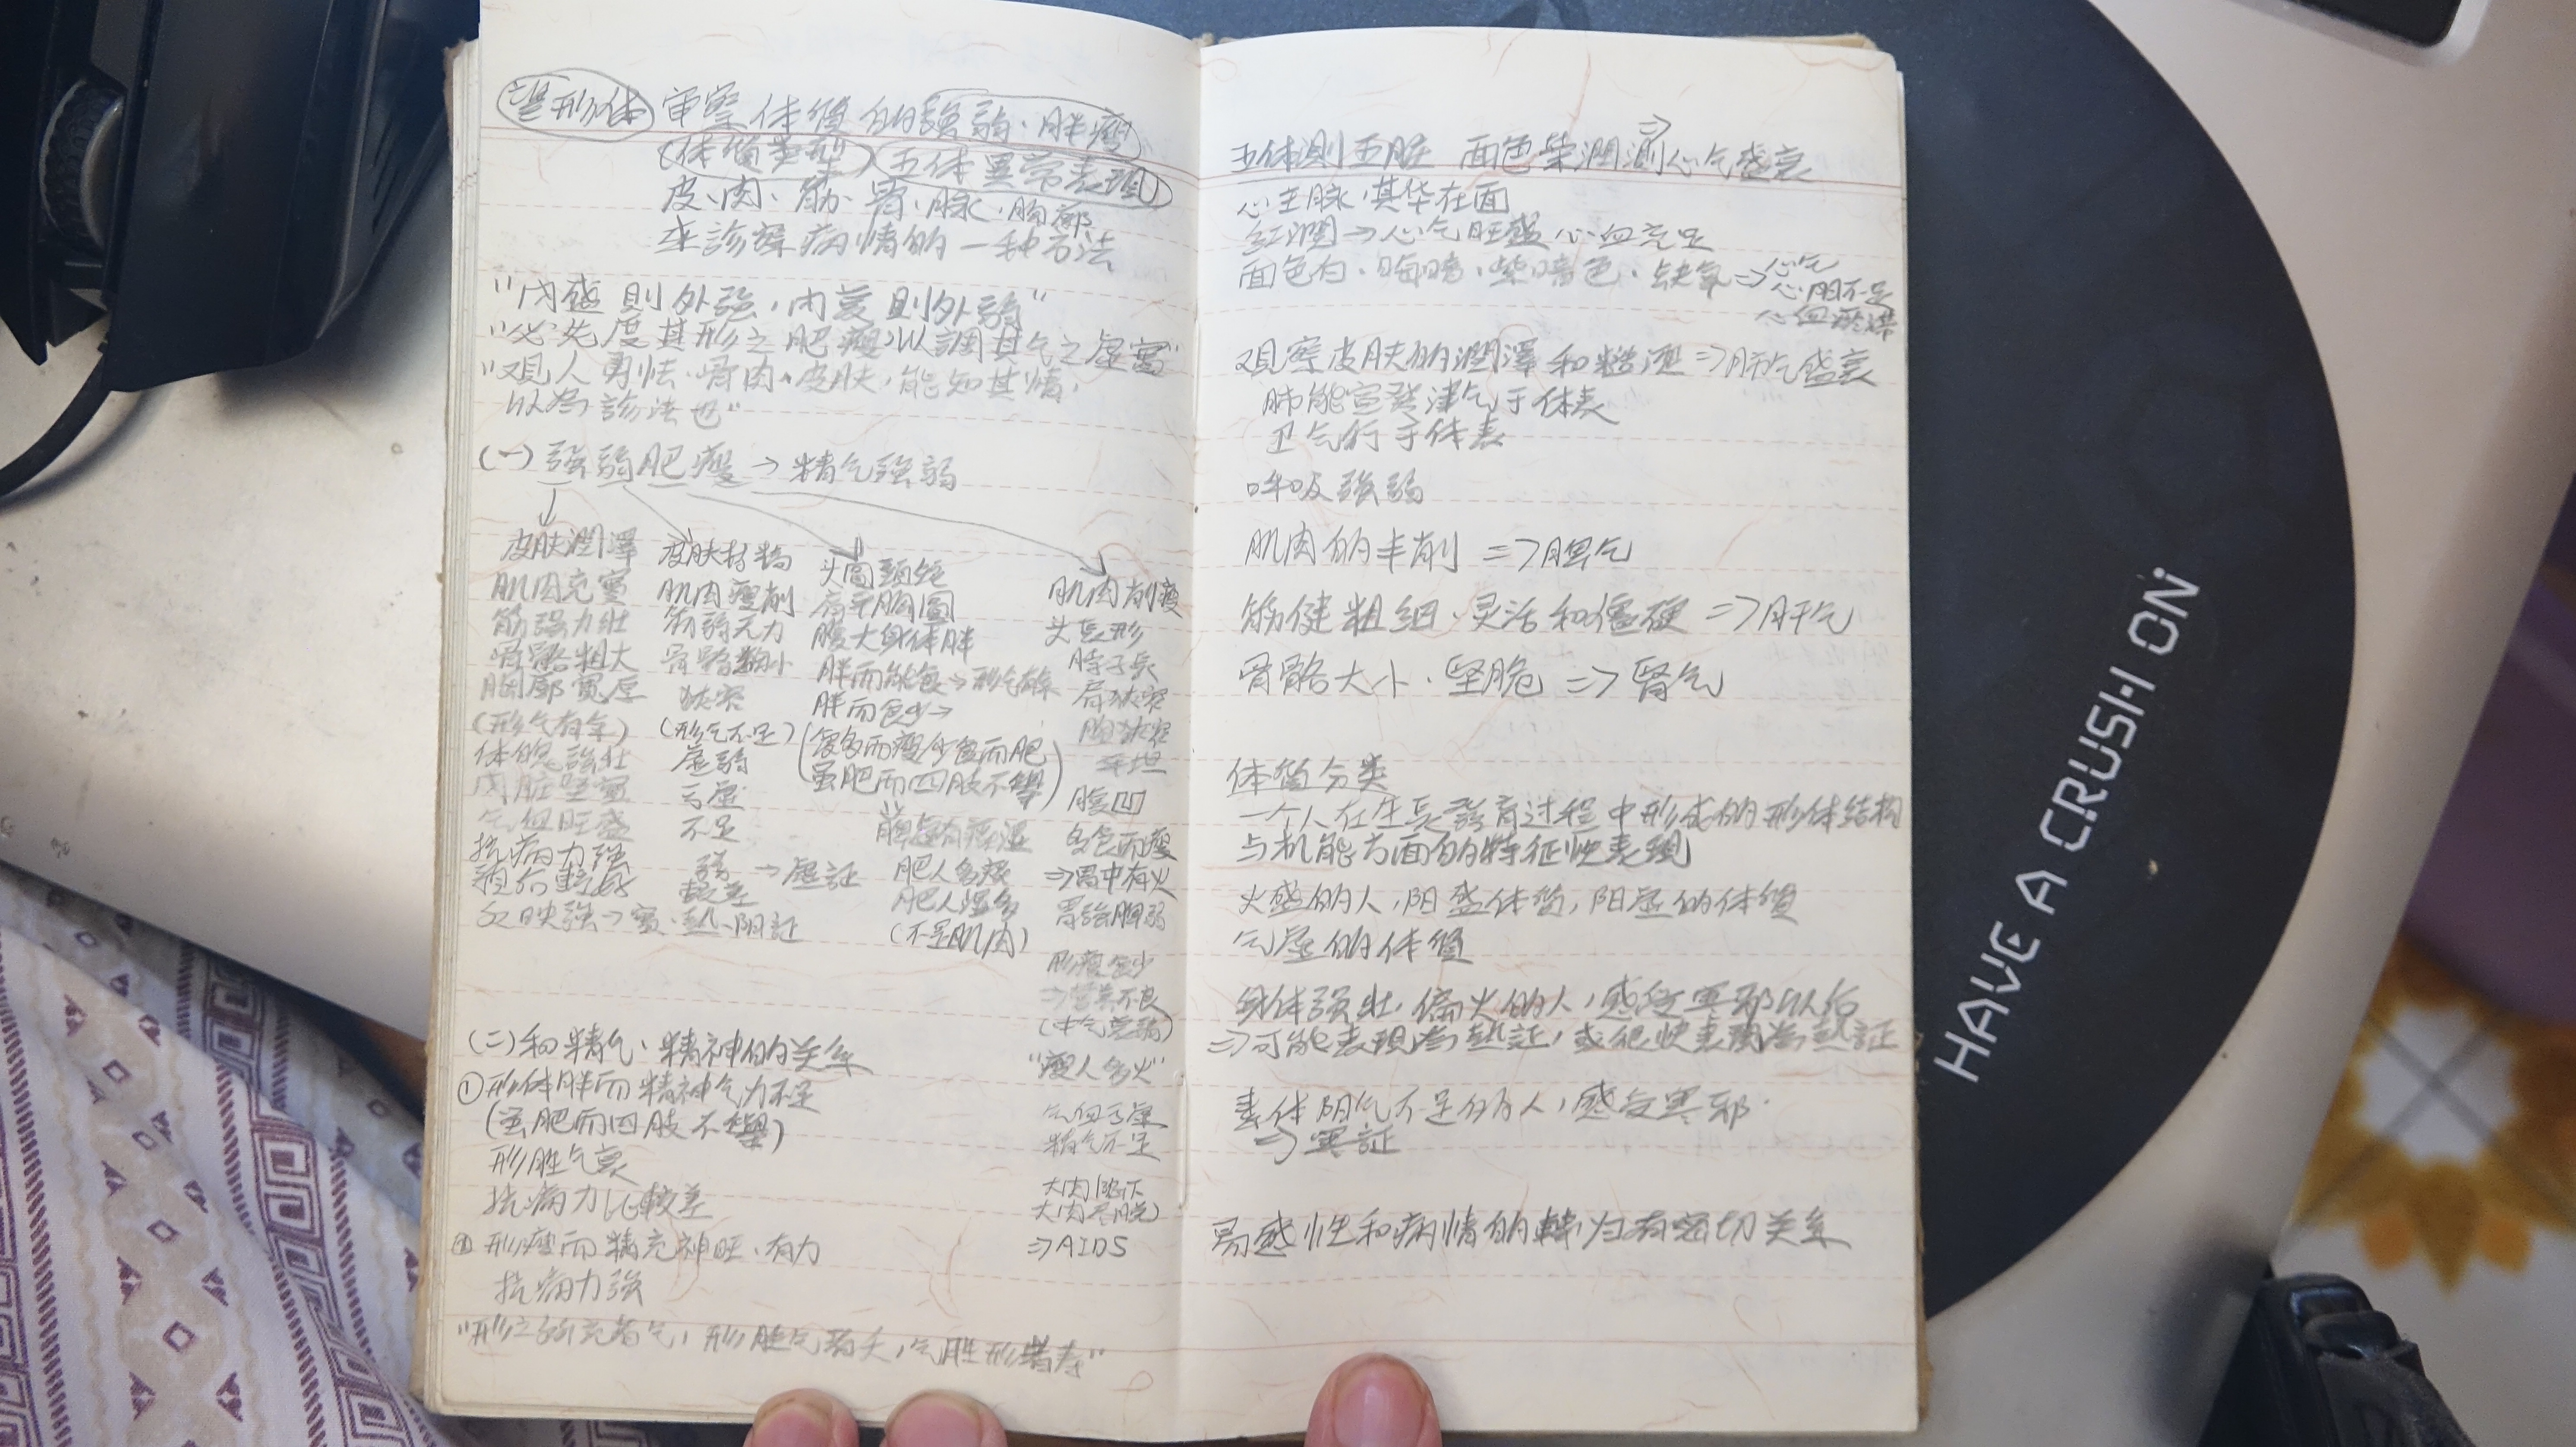 望形体 审察体質的強弱、胖瘦
(体質类型) 五体異常表現
皮、肉、筋、骨、脉、胸廓
来診察病情的一种方法
"内盛則外強,内衰則外弱"
"必先度其形之肥瘦,以調其气之虛實"
"观人勇怯、骨肉、皮肤,能知其情,
以為診法也"
(一)強弱肥瘦→精气強弱
皮肤潤澤
肌肉充實
筋強力壯
骨骼粗大
胸廓寬厚
(形气有余)
体魄強壮
内脏坚實
气血旺盛
抗病力強
預后較好
反映強→實、热、阳証
皮肤枯槁
肌肉瘦削
筋弱无力
骨骼細小
狭窄
(形气不足)
虛弱
亏虛
不足
弱 →虛証
較差
头圆頸短
肩平胸圓
腹大身体胖
胖而能食→形气有余
胖而食少→
(食多而瘦,少食而肥
虽肥而四肢不舉)
脾虛有痰湿
肥人多痰
肥人湿多
(不是肌肉)
肌肉削瘦
头長形
脖子長
肩狭窄
胸狭窄
平坦
腹凹
多食而瘦
⇒胃中有火
胃強脾弱
形瘦食少
⇒営养不良
(中气虛弱)
"瘦人多火"
气血亏虛
精气不足
大肉陷下
大肉尽脱
⇒AIDS
(二)和精气、精神的关系
①形体胖而精神气力不足
(虽肥而四肢不舉)
形胜气衰
抗病力比較差
② 形瘦而精充神旺、有力
抗病力強
"形之所充者气,形胜气者夭,气胜形者寿"
五体測五脏 面色荣潤⇒測心气盛衰
心主脉,其华在面
紅潤→心气旺盛 心血充足
面色白、晦暗、紫暗色、缺氧⇒心气
心阳不足
心血瘀滞
观察皮肤的潤澤和粗糙⇒肺气盛衰
肺能宣発津气于体表
卫气行于体表
呼吸強弱
肌肉的丰削 ⇒脾气
筋健粗細、灵活和僵硬 ⇒肝气
骨骼大小、坚脆 ⇒腎气
体質分类
一个人在生長発育过程中形成的形体结构
与机能方面的特征性表現
火盛的人,阳盛体質,阳虛的体質
气虛的体質
身体强壮,偏火的人,感受寒邪以后
⇒可能表現為热証,或很快表現為热証
素体阳气不足的人,感受寒邪
⇒寒証
易感性和病情的轉归有密切关系
HAVE A CRUSH ON